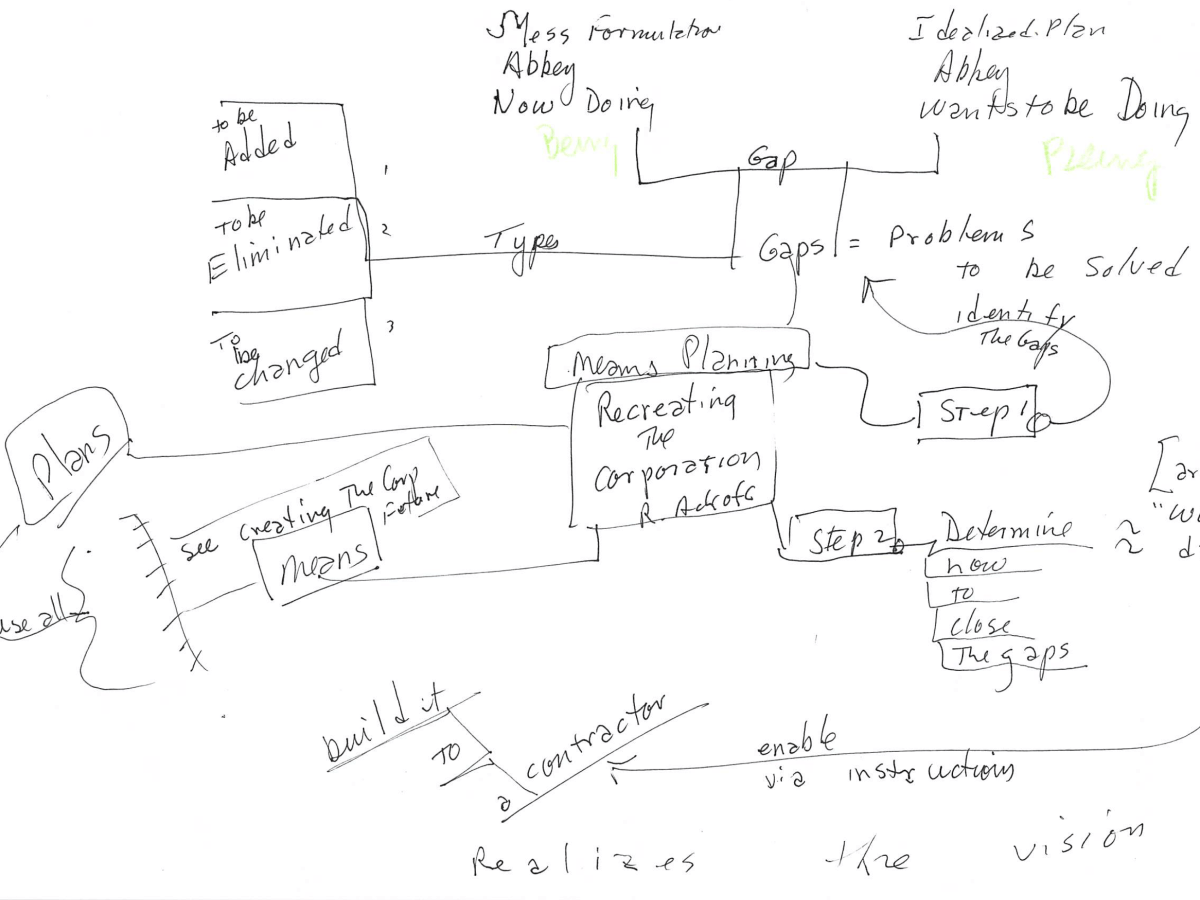 Mess Formulation
Abbey
Now Doing
Being
Idealized Plan
Abbey
wants to be Doing
to be
Added
1
To be
Eliminated
2
To
be
changed
3
Types
Gap
Gaps = Problems
to be solved
identify
The Gaps
Means Planning
Recreating
The
Corporation
R. Ackoff
Step 1
Step 2
Determine
how
to
close
The gaps
Plans
see creating The Corp
Future
Means
use all
build it
To
a
contractor
enable
via instructions
Realizes the vision